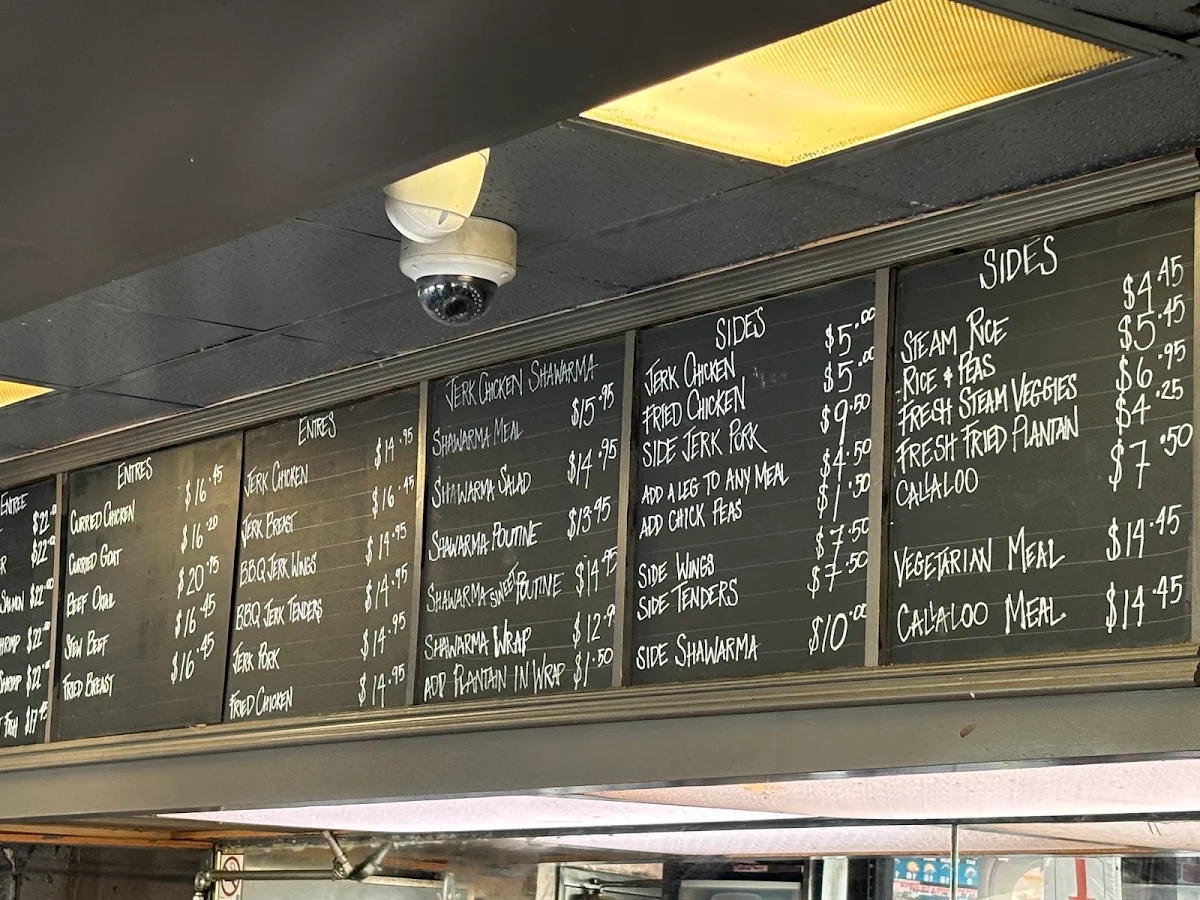 ENTREE
$22.00
$22.00
SALMON $22.00
SHRIMP $22
SHRIMP $22
FISH $17.95
ENTRES
CURRIED CHICKEN $16.45
CURRIED GOAT $16.20
BEEF OXTAIL $20.95
STEW BEEF $16.45
FRIED BREAST $16.45
ENTRES
JERK CHICKEN $14.95
JERK BREAST $16.45
BBQ JERK WINGS $14.95
BBQ JERK TENDERS $14.95
JERK PORK $14.95
FRIED CHICKEN $14.95
JERK CHICKEN SHAWARMA
SHAWARMA MEAL $15.95
SHAWARMA SALAD $14.95
SHAWARMA POUTINE $13.95
SHAWARMA SWEET POUTINE $14.95
SHAWARMA WRAP $12.9
ADD PLANTAIN IN WRAP $1.50
SIDES
JERK CHICKEN $5.00
FRIED CHICKEN $5.00
SIDE JERK PORK $9.50
ADD A LEG TO ANY MEAL $4.50
ADD CHICK PEAS $1.50
SIDE WINGS $7.50
SIDE TENDERS $7.50
SIDE SHAWARMA $10.00
SIDES
STEAM RICE $4.45
RICE & PEAS $5.45
FRESH STEAM VEGGIES $6.95
FRESH FRIED PLANTAIN $4.25
CALLALOO $7.50
VEGETARIAN MEAL $14.45
CALLALOO MEAL $14.45